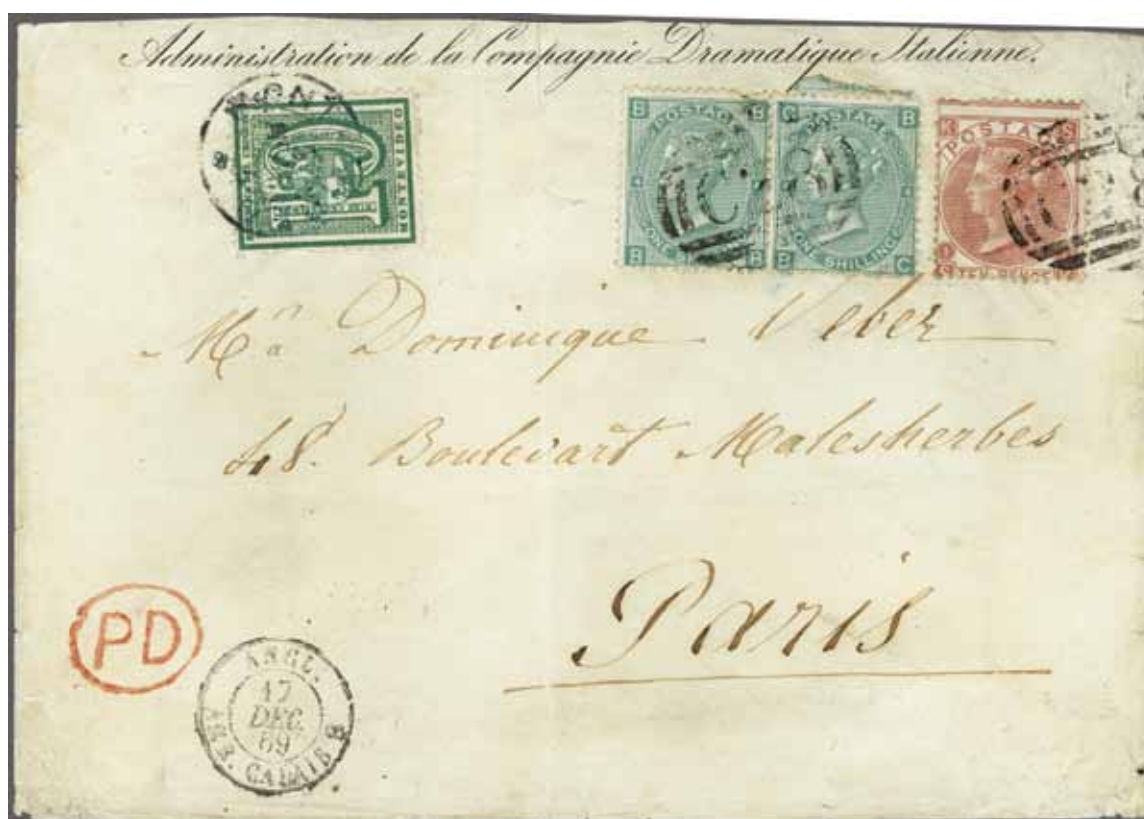 Administration de la Compagnie Dramatique Italienne.
MONTEVIDEO
POSTAGE
ONE SHILLING
POSTAGE
ONE SHILLING
POSTAGE
TEN PENCE
B B
B B
C B
B C
C 28
Mn a Dominique Veber
48. Boulevart Malesherbes
Paris
PD
ANGL.
17
DEC.
69
AMB. CALAIS